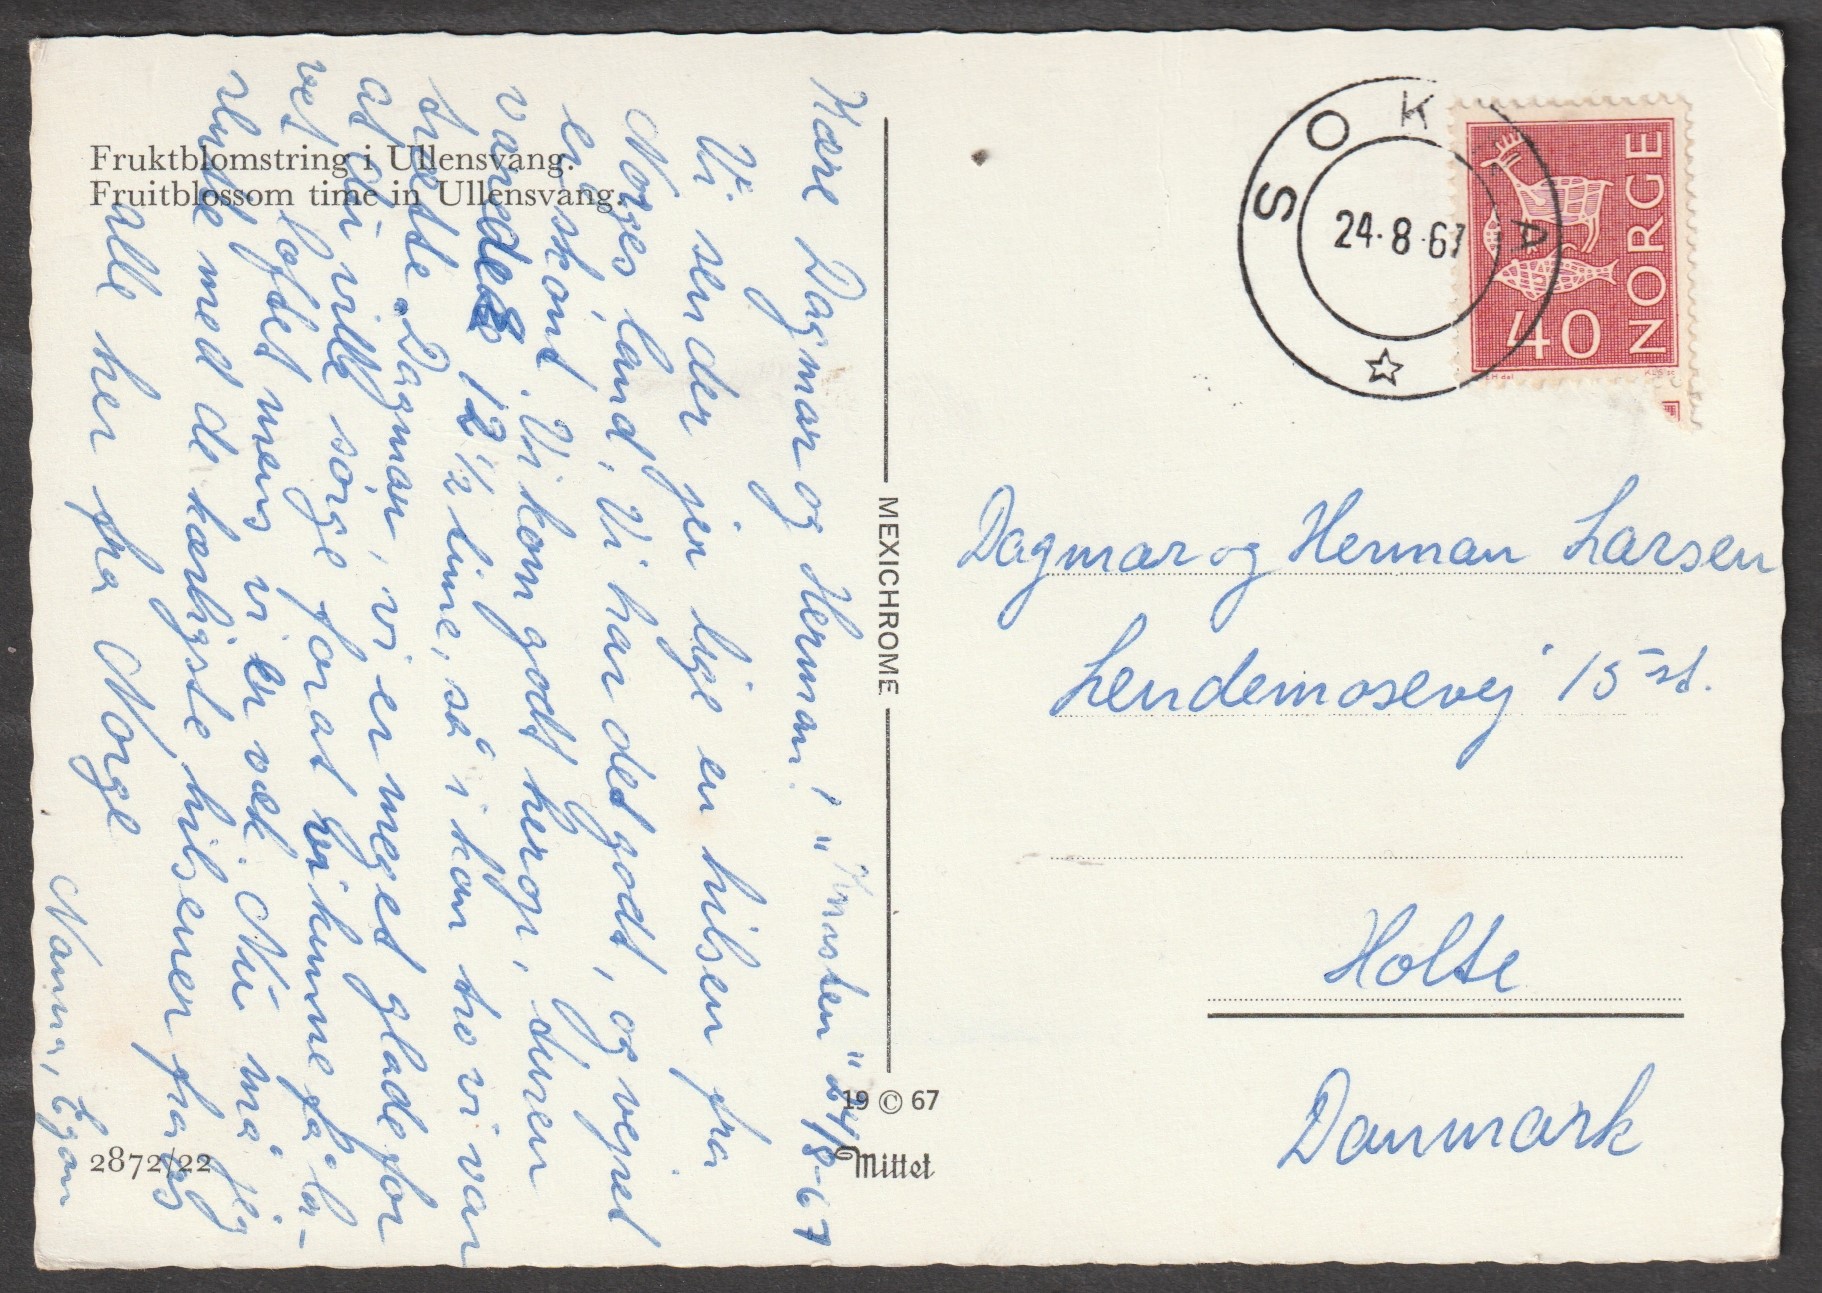 Fruktblomstring i Ullensvang.
Fruitblossom time in Ullensvang.
Kære Dagmar og Herman! " " 24/8-67
Vi sender jer lige en hilsen fra
Norges land, Vi har det godt, og vejret
er skønt. Vi kom godt herop, turen
varede 12½ time, så i kan tro vi var
trætte. Dagmar, vi er meget glade for
at du ville sørge for at vi kunne få la-
vet loftet mens vi er væk. Nu må jeg
slutte med de kærligste hilsener fra os
alle her fra Norge
Nanna, Egon
2872/22
MEXICHROME
19 © 67
Mittet
SOKNA
24·8·67
NORGE
40
Dagmar og Herman Larsen
Lendemosevej 15 st.
Holte
Danmark